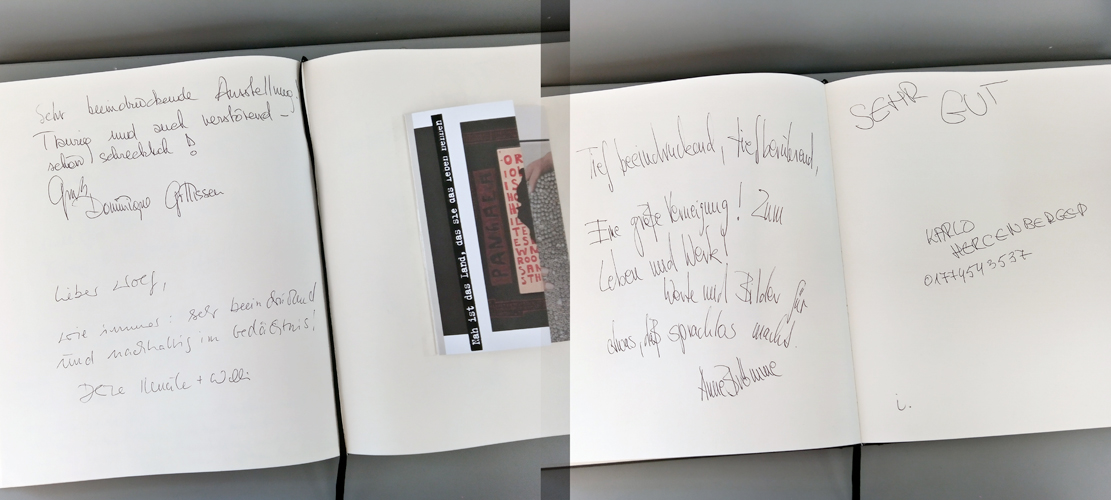 Sehr beeindruckende Ausstellung.
Traurig und auch verstörend –
schön schrecklich!
Gruß
Dominique Gillissen
Lieber Wolf,
wie immer: sehr beeindruckend
und nachhaltig im Gedächtnis!
Deine + Willi
Nah ist das Land, das sie das Leben nennen
PANNACH
Tief beeindruckend, tief berührend,
Eine große Verneigung! Zum
Leben und Werk!
Worte und Bilder für
etwas, daß sprachlos macht.
SEHR GUT
KARLO
HERGENBERGER
01774543537
i.